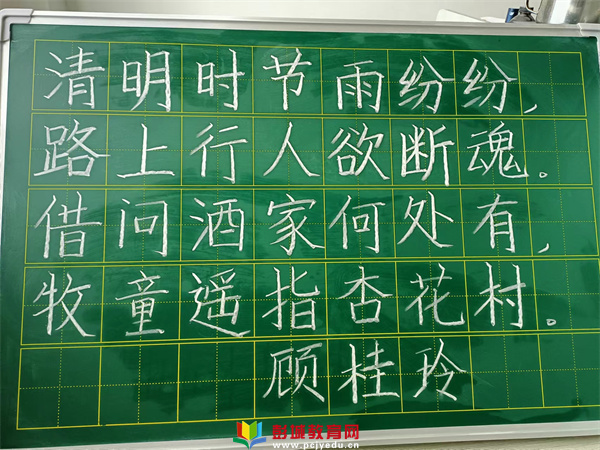 清明时节雨纷纷,
路上行人欲断魂。
借问酒家何处有,
牧童遥指杏花村。
顾桂玲
彭城教育网
www.pcjyedu.cn